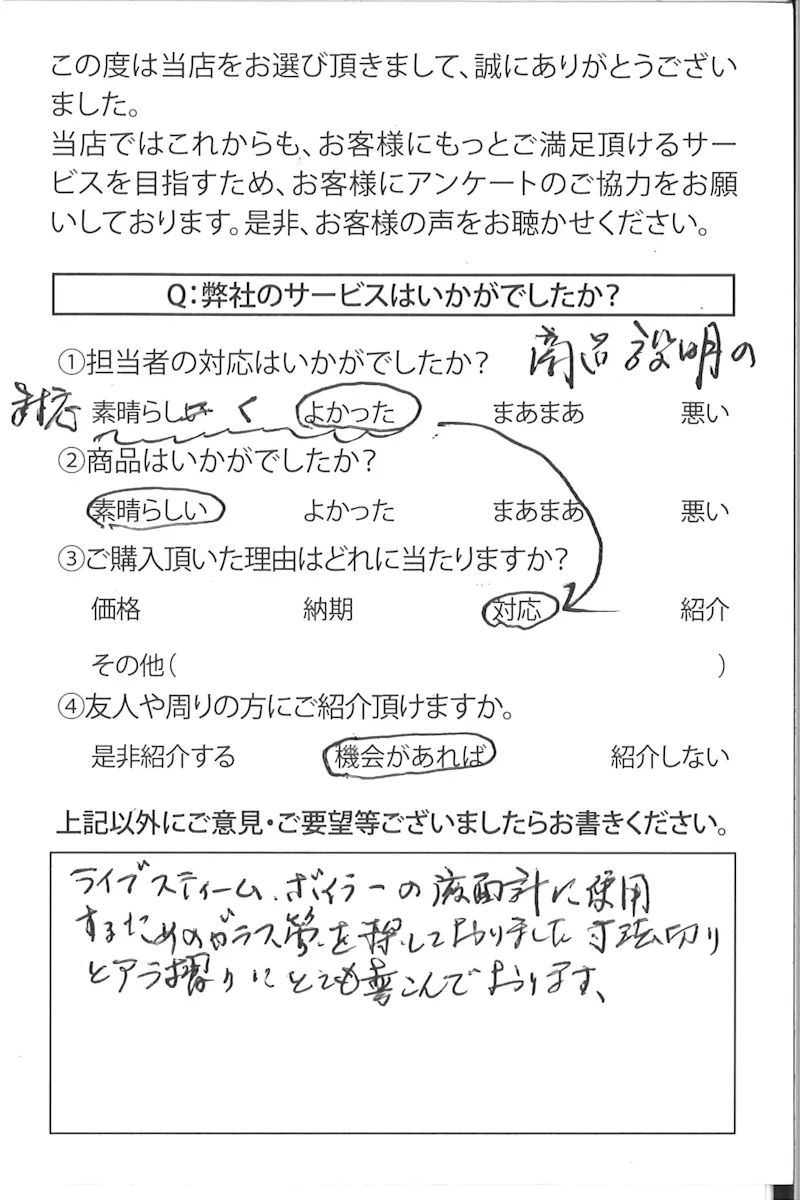 この度は当店をお選び頂きまして、誠にありがとうござい
ました。
当店ではこれからも、お客様にもっとご満足頂けるサー
ビスを目指すため、お客様にアンケートのご協力をお願
いしております。是非、お客様の声をお聴かせください。
Q:弊社のサービスはいかがでしたか?
①担当者の対応はいかがでしたか? 商品説明の
対応 素晴らしく よかった まあまあ 悪い
②商品はいかがでしたか?
素晴らしい よかった まあまあ 悪い
③ご購入頂いた理由はどれに当たりますか?
価格 納期 対応 紹介
その他( )
④友人や周りの方にご紹介頂けますか。
是非紹介する 機会があれば 紹介しない
上記以外にご意見・ご要望等ございましたらお書きください。
ライブスティーム、ボイラーの液面計に使用
するためのガラス管を探しておりました 寸法切り
とアラ摺りにとても喜こんでおります、